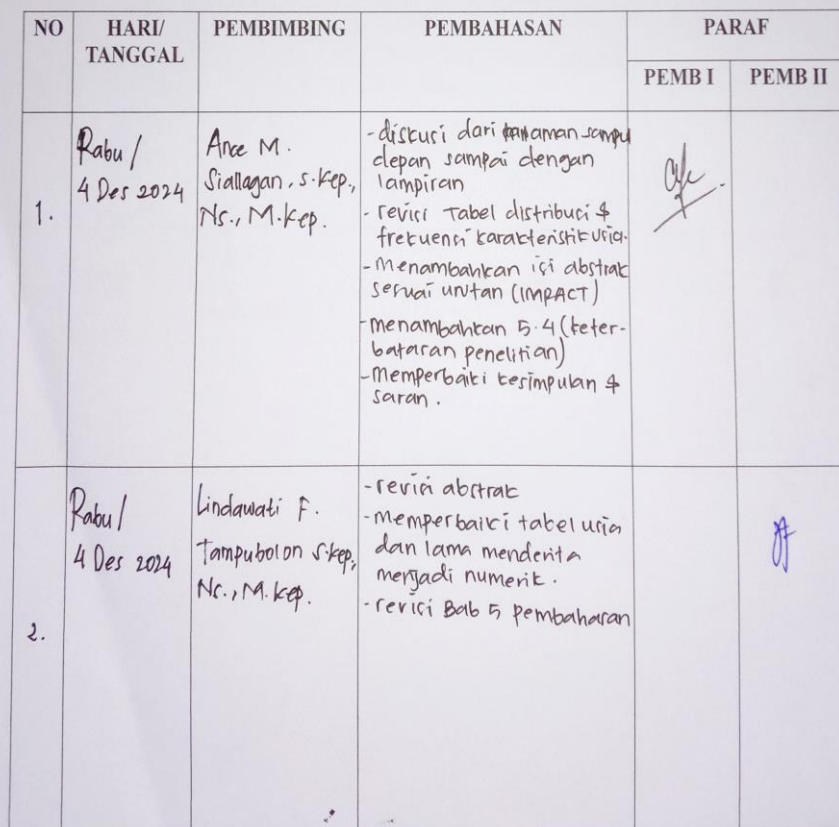 NO HARI/ PEMBIMBING PEMBAHASAN PARAF
TANGGAL
PEMB I PEMB II
1.
Rabu /
4 Des 2024
Ance M.
Siallagan, S.Kep.,
Ns., M.Kep.
- diskusi dari halaman sampul
depan sampai dengan
lampiran
- revisi Tabel distribusi &
frekuensi karakteristik usia.
- Menambahkan isi abstrak
sesuai urutan (IMPACT)
- menambahkan 5.4 (keter-
batasan penelitian)
- Memperbaiki kesimpulan &
saran.
2.
Rabu /
4 Des 2024
Lindawati F.
Tampubolon S.Kep.,
Ns., M.Kep.
- revisi abstrak
- memperbaiki tabel usia
dan lama menderita
menjadi numerik.
- revisi Bab 5 pembahasan